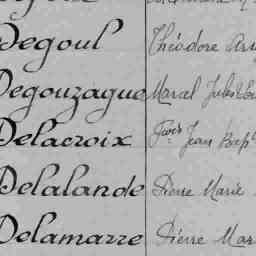 Degoul Théodore
Degouzague Marcel Jules
Delacroix Fçois Jean Bapt
Delalande Pierre Marie
Delamarre Pierre Mar